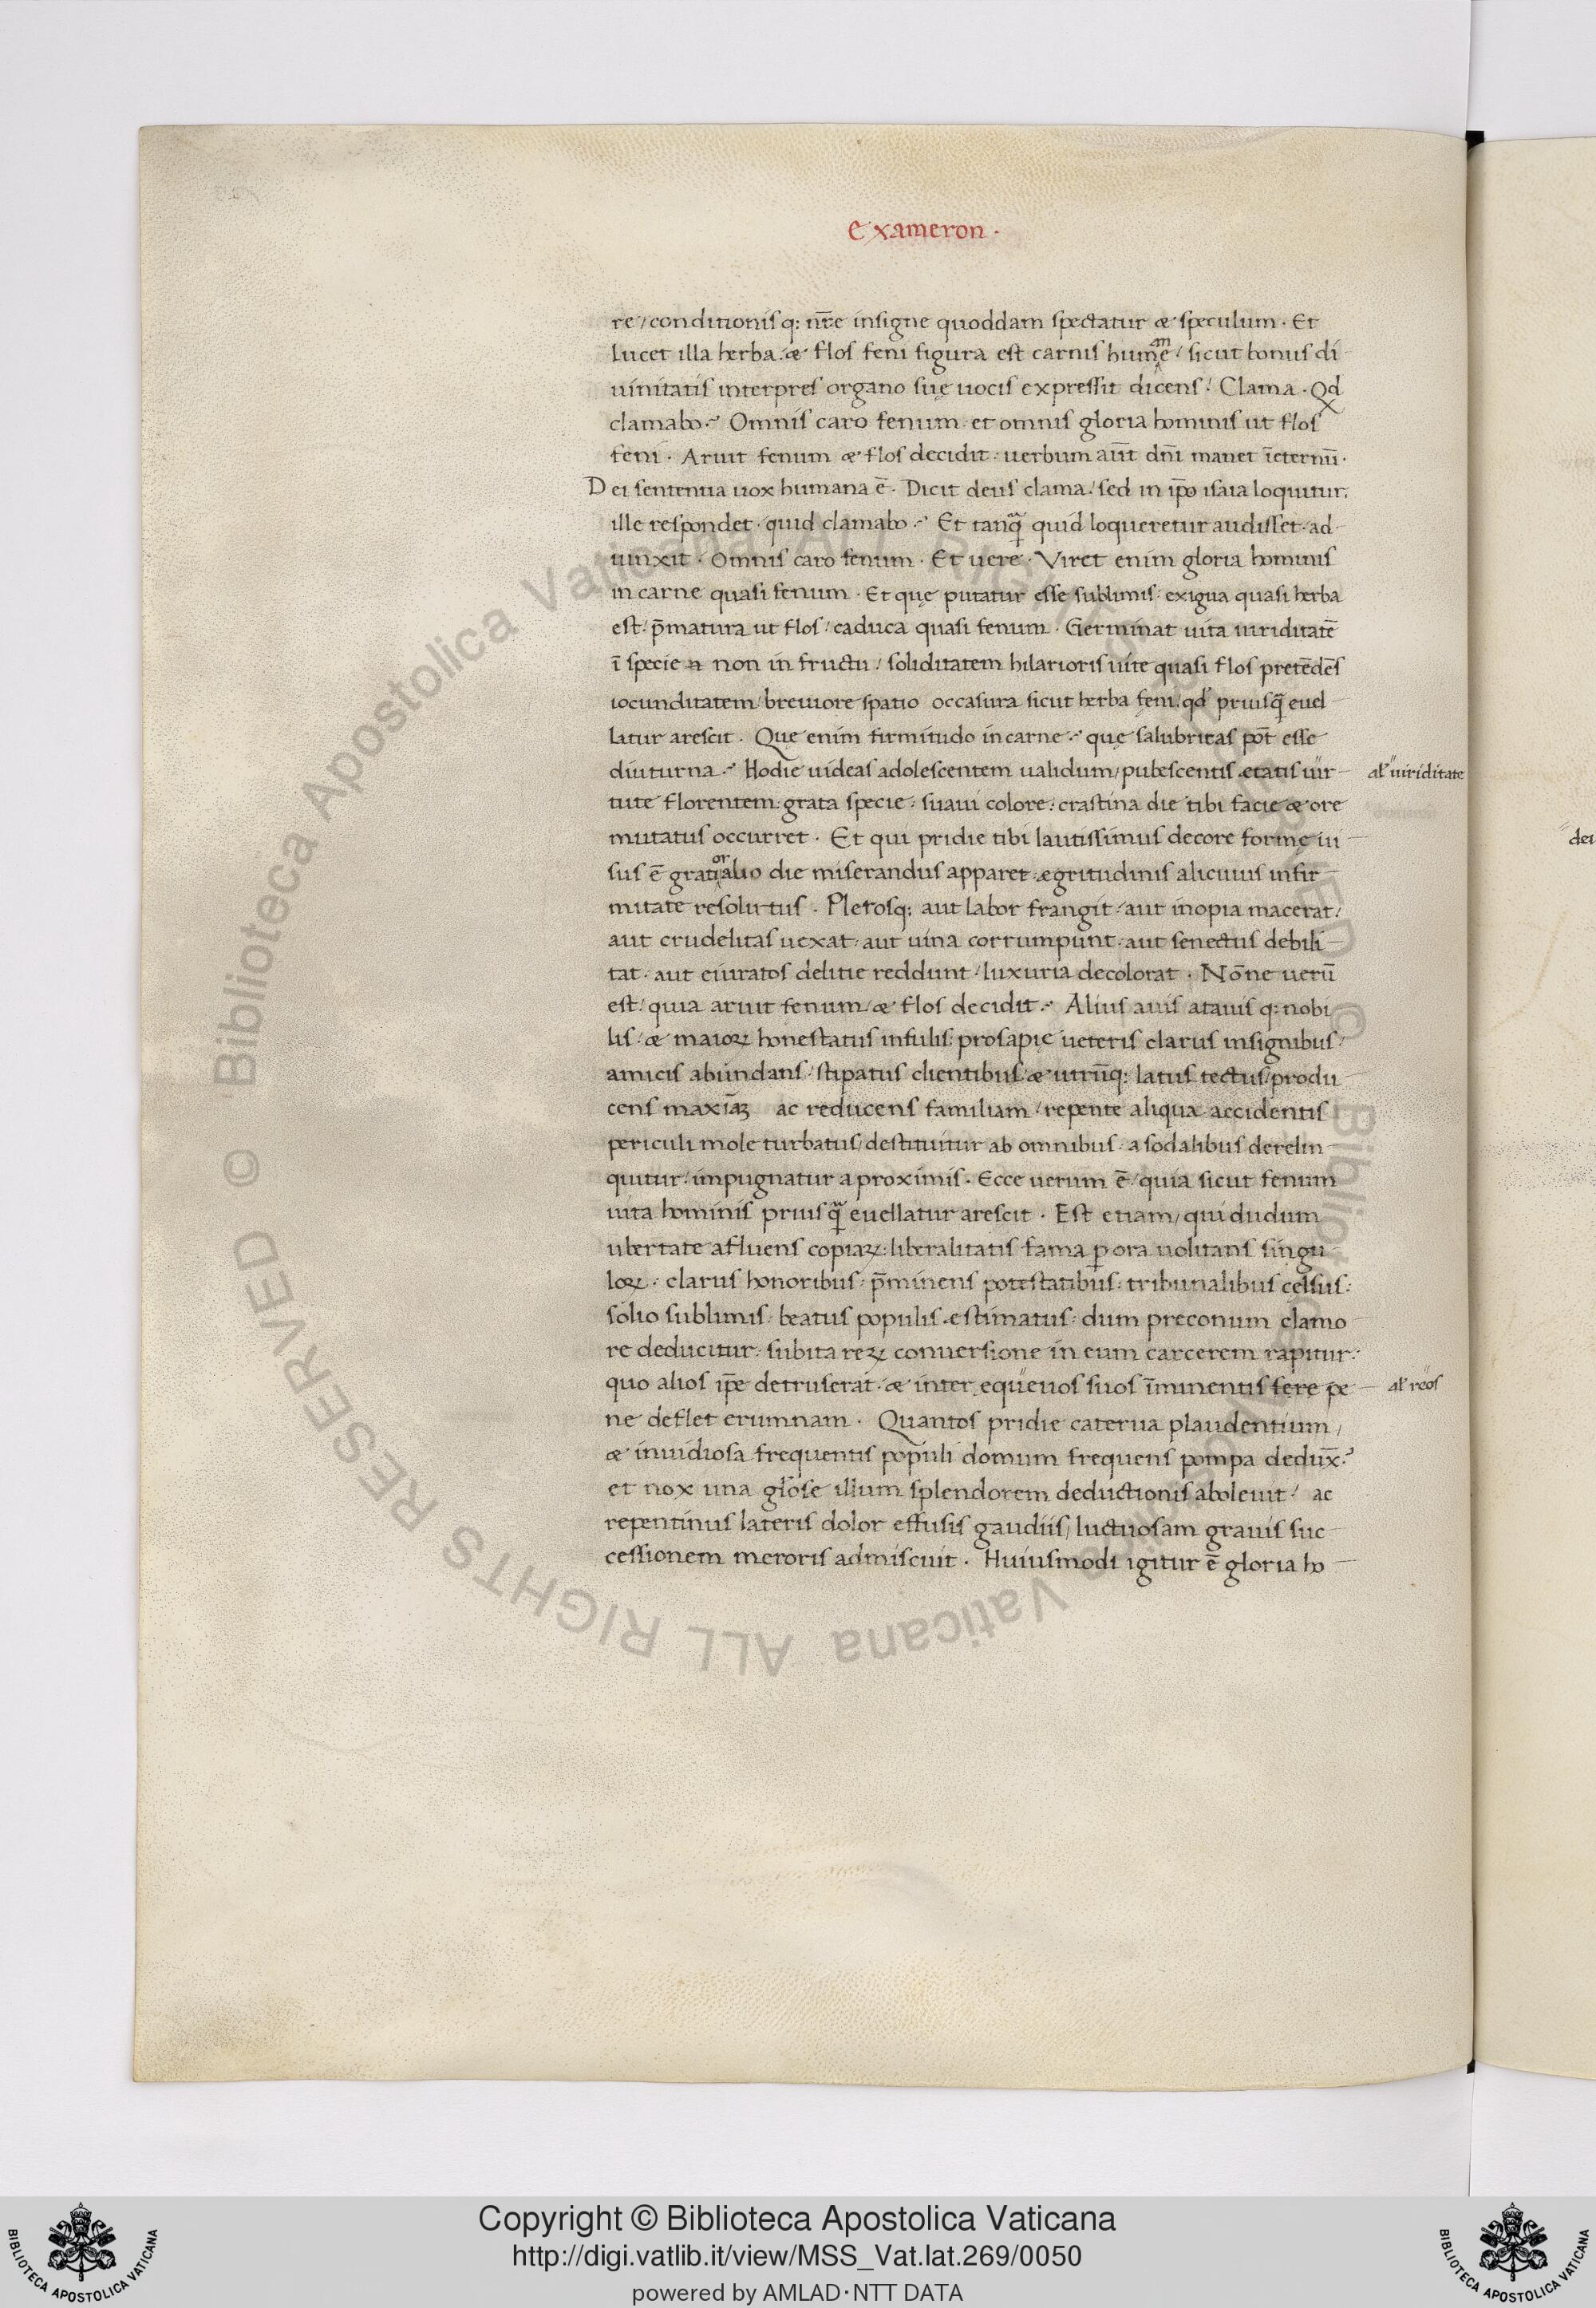 Exameron ·
re / conditionisq: nr̄e insigne quoddam spectatur & speculum · Et
lucet illa herba · & flos feni figura est carnis humanę / sicut bonus di
uinitatis interpres organo suę uocis expressit dicens / Clama · Qd
clamabo ? Omnis caro fenum · et omnis gloria hominis ut flos
feni · Aruit fenum & flos decidit : uerbum aūt dn̄i manet īeternū ·
Dei sententia uox humana ē · Dicit deus clama / sed in ip̄o isaia loquitur .
ille respondet · quid clamabo ? Et tanq̄ quid loqueretur audisset · ad
iunxit · Omnis caro fenum · Et uere · Viret enim gloria hominis
in carne quasi fenum · Et quę putatur esse sublimis : exigua quasi herba
est / p̄matura ut flos / caduca quasi fenum · Germinat uita uiriditatē
ī specie non in fructu / soliditatem hilarioris uite quasi flos pretēdēs
iocunditatem / breuiore spatio occasura sicut herba feni / qd priusq̄ euel
latur arescit · Quę enim firmitudo in carne ? quę salubritas pōt esse
diuturna ? Hodie uideas adolescentem ualidum / pubescentis ętatis uir
al' uiriditate
tute florentem : grata specie : suaui colore : crastina die tibi facie & ore
mutatus occurret · Et qui pridie tibi lautissimus decore formę ui
sus ē gratior alio die miserandus apparet · ęgritudinis alicuius infir
mitate resolutus · Plerosq: aut labor frangit / aut inopia macerat /
aut crudelitas uexat · aut uina corrumpunt · aut senectus debili
tat · aut euiratos delitie reddunt / luxuria decolorat · Nōne uerū
est / quia aruit fenum / & flos decidit ? Alius auis atauisq: nobi
lis / & maioꝝ honestatus infulis : prosapię ueteris clarus insignibus /
amicis abundans / stipatus clientibus / & utrūq: latus tectus / produ
cens ac reducens familiam / repente aliqua accidentis
periculi mole turbatus / destituitur ab omnibus · a sodalibus derelin
quitur / impugnatur a proximis · Ecce uerum ē / quia sicut fenum
uita hominis priusq̄ euellatur arescit · Est etiam / qui dudum
ubertate afluens copiaꝝ : liberalitatis fama ꝑ ora uolitans singu
loꝝ · clarus honoribus : p̄minens potestatibus : tribunalibus celsus :
solio sublimis : beatus populis ęstimatus : dum preconum clamo
re deducitur : subita reꝝ conuersione in eum carcerem rapitur :
quo alios ip̄e detruserat · & inter equeuos suos īminentis fere pe
al' reos
ne deflet erumnam · Quantos pridie caterua plaudentium /
& inuidiosa frequentis populi domum frequens pompa dedux̄ ?
et nox una gl'ose illum splendorem deductionis aboleuit / ac
repentinus lateris dolor effusis gaudiis / luctuosam grauis suc
cessionem meroris admiscuit · Huiusmodi igitur ē gloria ho
dei
© Biblioteca Apostolica Vaticana ALL RIGHTS RESERVED © Biblioteca Apostolica Vaticana ALL RIGHTS RESERVED
BIBLIOTECA APOSTOLICA VATICANA
Copyright © Biblioteca Apostolica Vaticana
http://digi.vatlib.it/view/MSS_Vat.lat.269/0050
powered by AMLAD·NTT DATA
BIBLIOTECA APOSTOLICA VATICANA